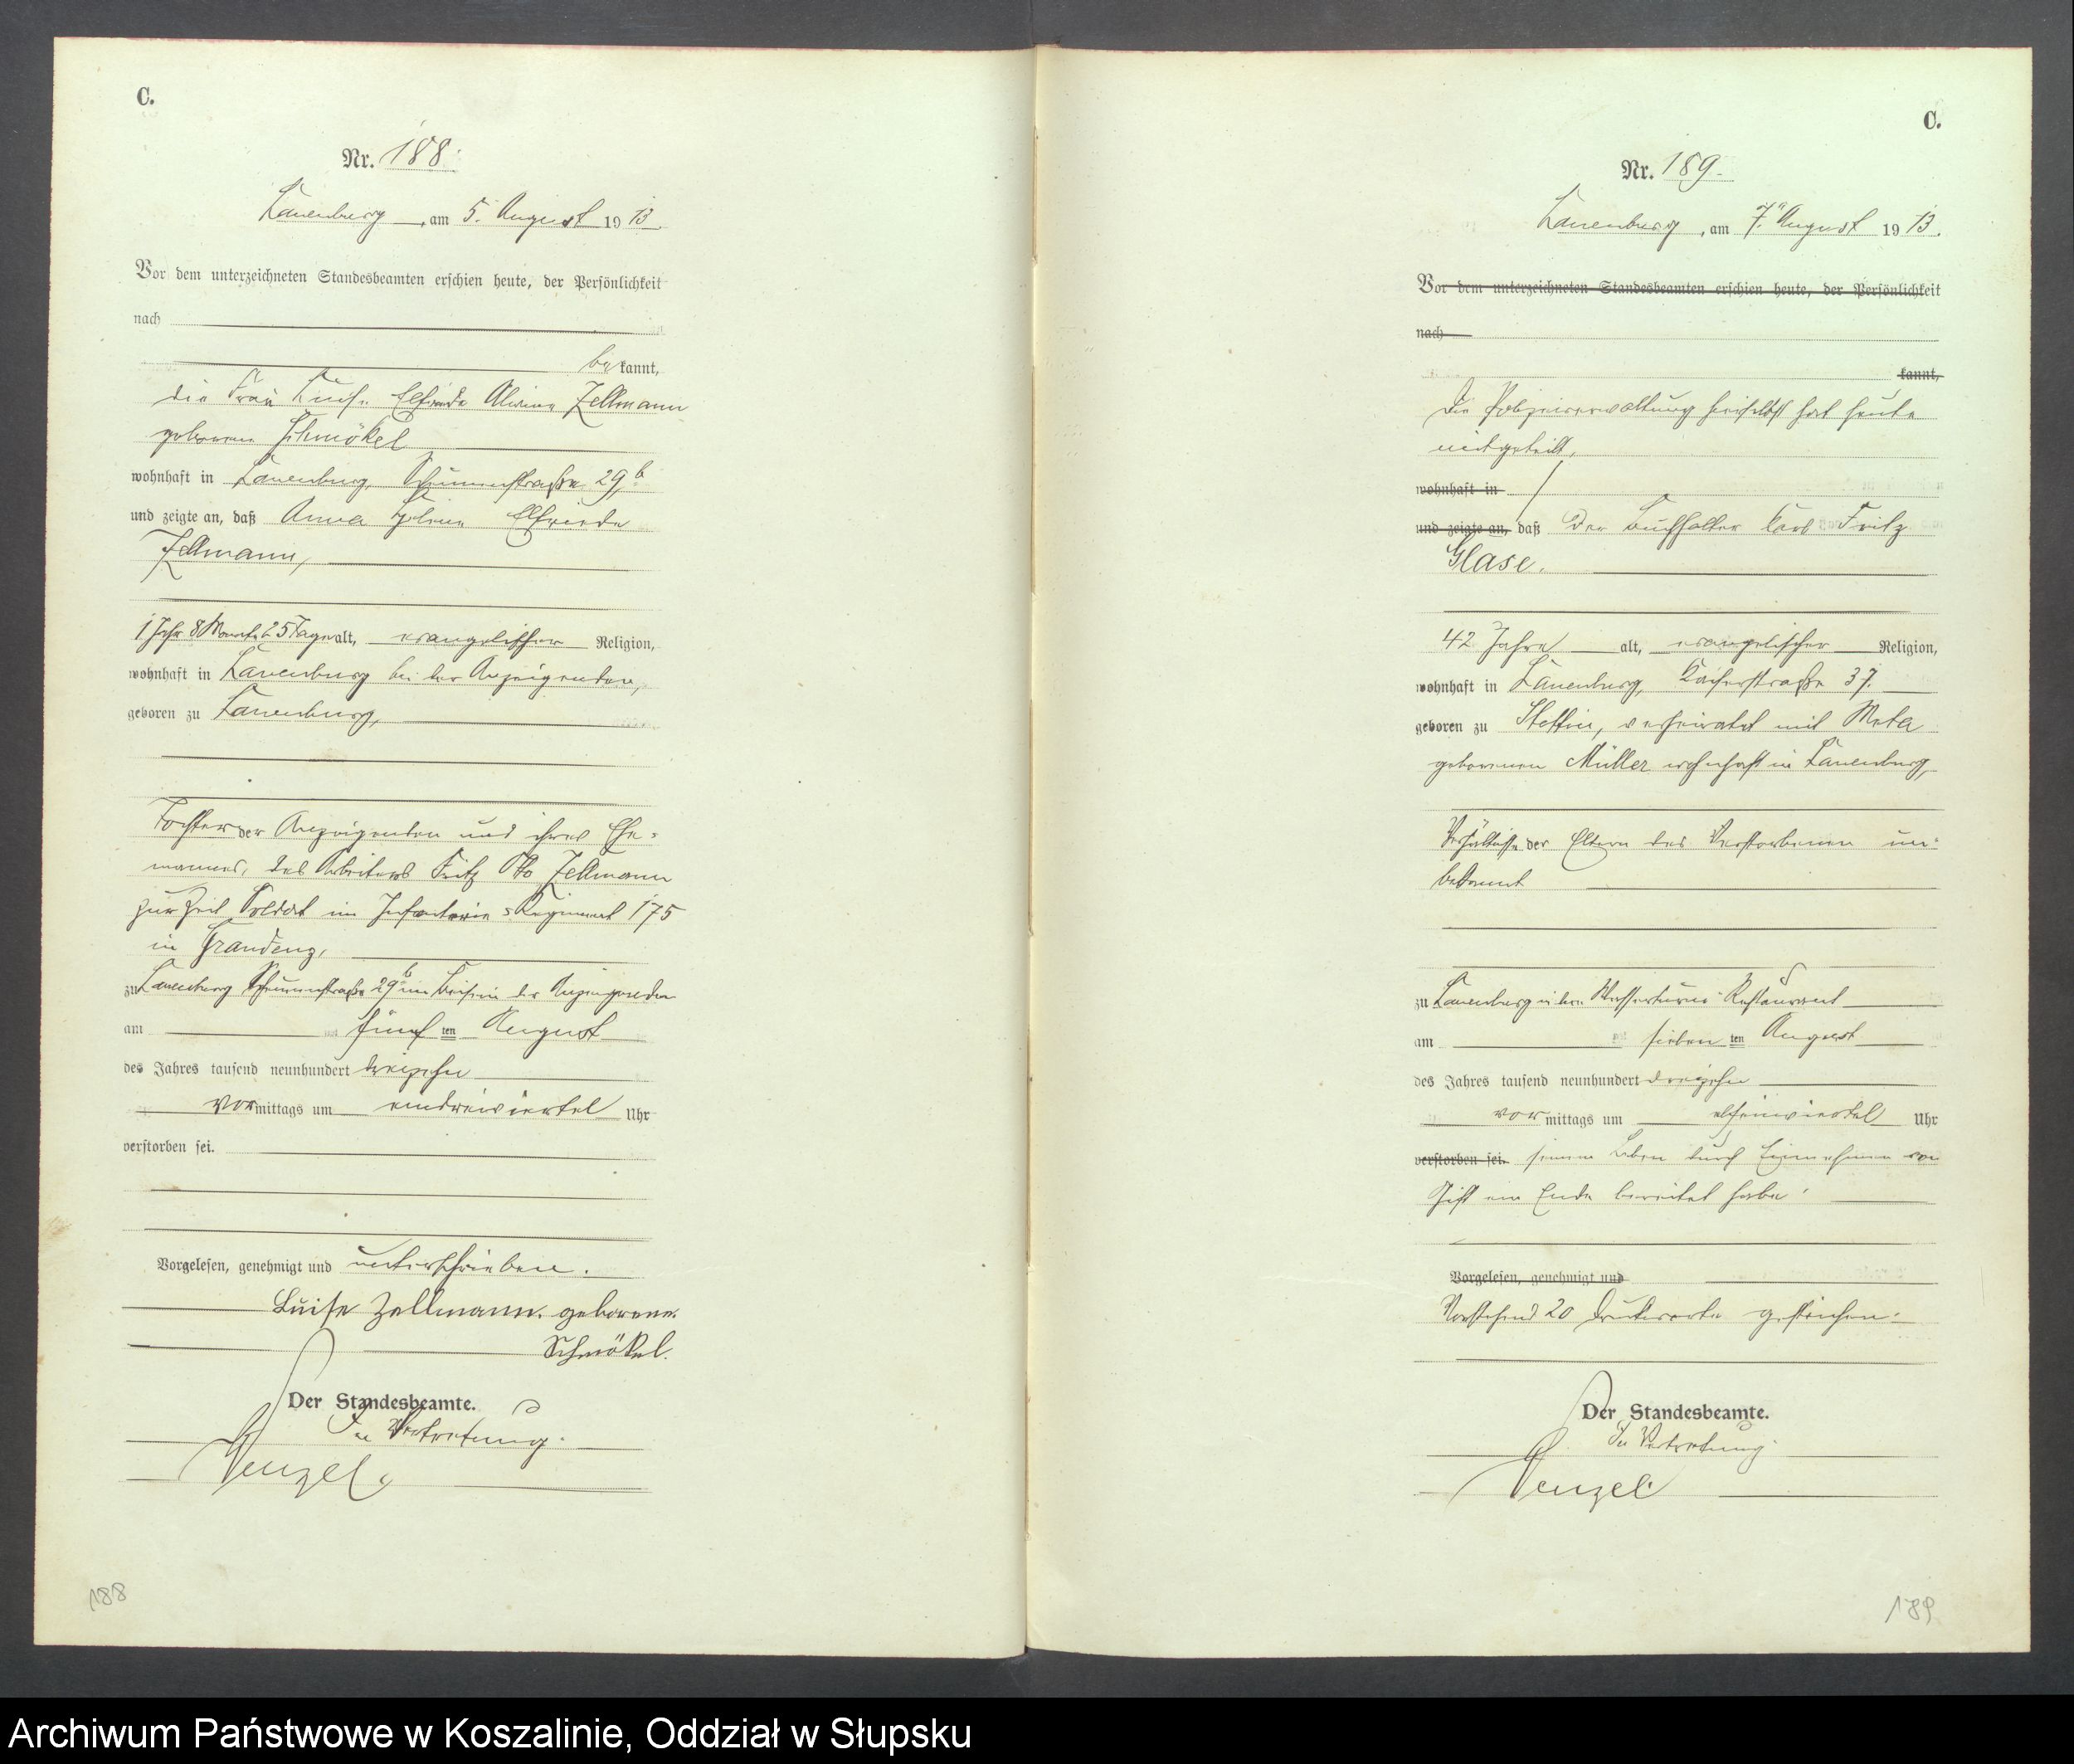 C.
Nr. 188.
Lauenburg, am 5. August 1913.
Vor dem unterzeichneten Standesbeamten erschien heute, der Persönlichkeit
nach
bekannt,
die Frau Elfriede Alwine Zellmann
geborene Schmökel
wohnhaft in Lauenburg, Scheunenstraße 29b
und zeigte an, daß Anna Elfriede
Zellmann,
1 Jahr 8 Monate 25 Tage alt, evangelischer Religion,
wohnhaft in Lauenburg bei der Anzeigenden,
geboren zu Lauenburg,
Tochter der Anzeigenden und ihres Ehe-
mannes, des Arbeiters Fritz Otto Zellmann
zur Zeit Soldat im Infanterie-Regiment 175
in Graudenz,
zu Lauenburg Scheunenstraße 29b im Beisein der Anzeigenden
am fünften August
des Jahres tausend neunhundert dreizehn
vormittags um eindreiviertel Uhr
verstorben sei.
Vorgelesen, genehmigt und unterschrieben.
Luise Zellmann. geborene.
Schmökel.
Der Standesbeamte.
In Vertretung.
Wenzel.
188
C.
Nr. 189.
Lauenburg, am 7. August 1913.
Vor dem unterzeichneten Standesbeamten erschien heute, der Persönlichkeit
nach
kannt,
Die Polizeiverwaltung hierselbst hat heute
mitgeteilt,
wohnhaft in
und zeigte an, daß der Buchhalter Karl Fritz
Glase.
42 Jahre alt, evangelischer Religion,
wohnhaft in Lauenburg, Kaiserstraße 37.
geboren zu Stettin, verheiratet mit Meta
geborenen Müller wohnhaft in Lauenburg,
Verhältnisse der Eltern des Verstorbenen un-
bekannt
zu Lauenburg in dem Wasserturm-Restaurant
am siebenten August
des Jahres tausend neunhundert dreizehn
vormittags um elfeinviertel Uhr
verstorben sei. seinem Leben durch Einnehmen von
Gift ein Ende bereitet habe.
Vorgelesen, genehmigt und
Vorstehend 20 Druckworte gestrichen.
Der Standesbeamte.
In Vertretung.
Wenzel.
189
Archiwum Państwowe w Koszalinie, Oddział w Słupsku